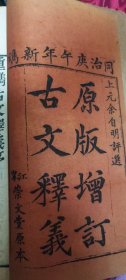 同治庚午年新鐫
上元余自明評選
原版增訂
古文釋義
崇文堂原本
古文釋義